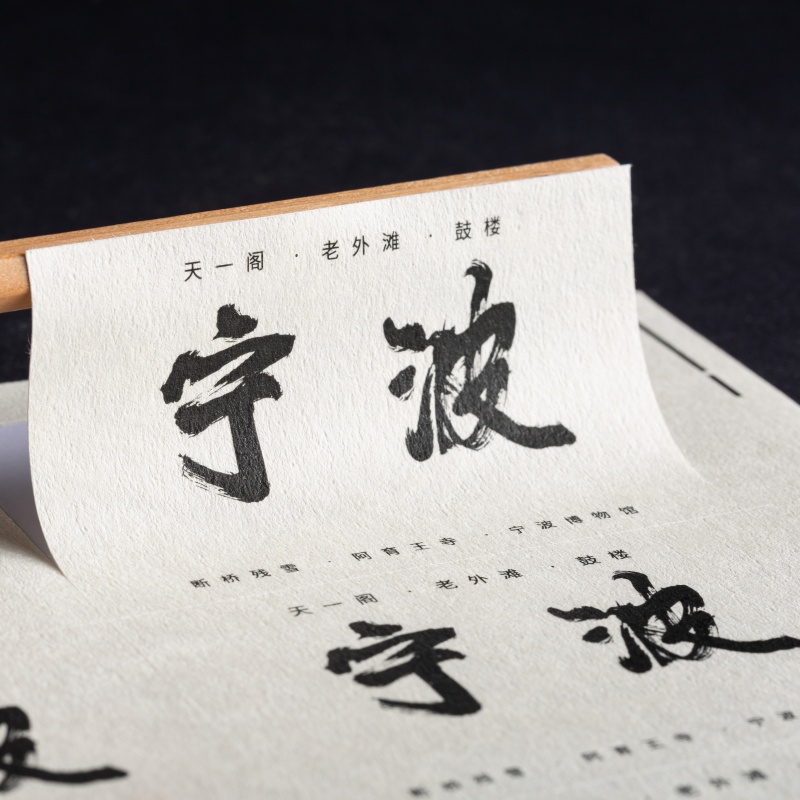 天一阁 · 老外滩 · 鼓楼
宁波
断桥残雪 · 阿育王寺 · 宁波博物馆
天一阁 · 老外滩 · 鼓楼
宁波
波
断桥残雪 · 阿育王寺 · 宁波
老外滩